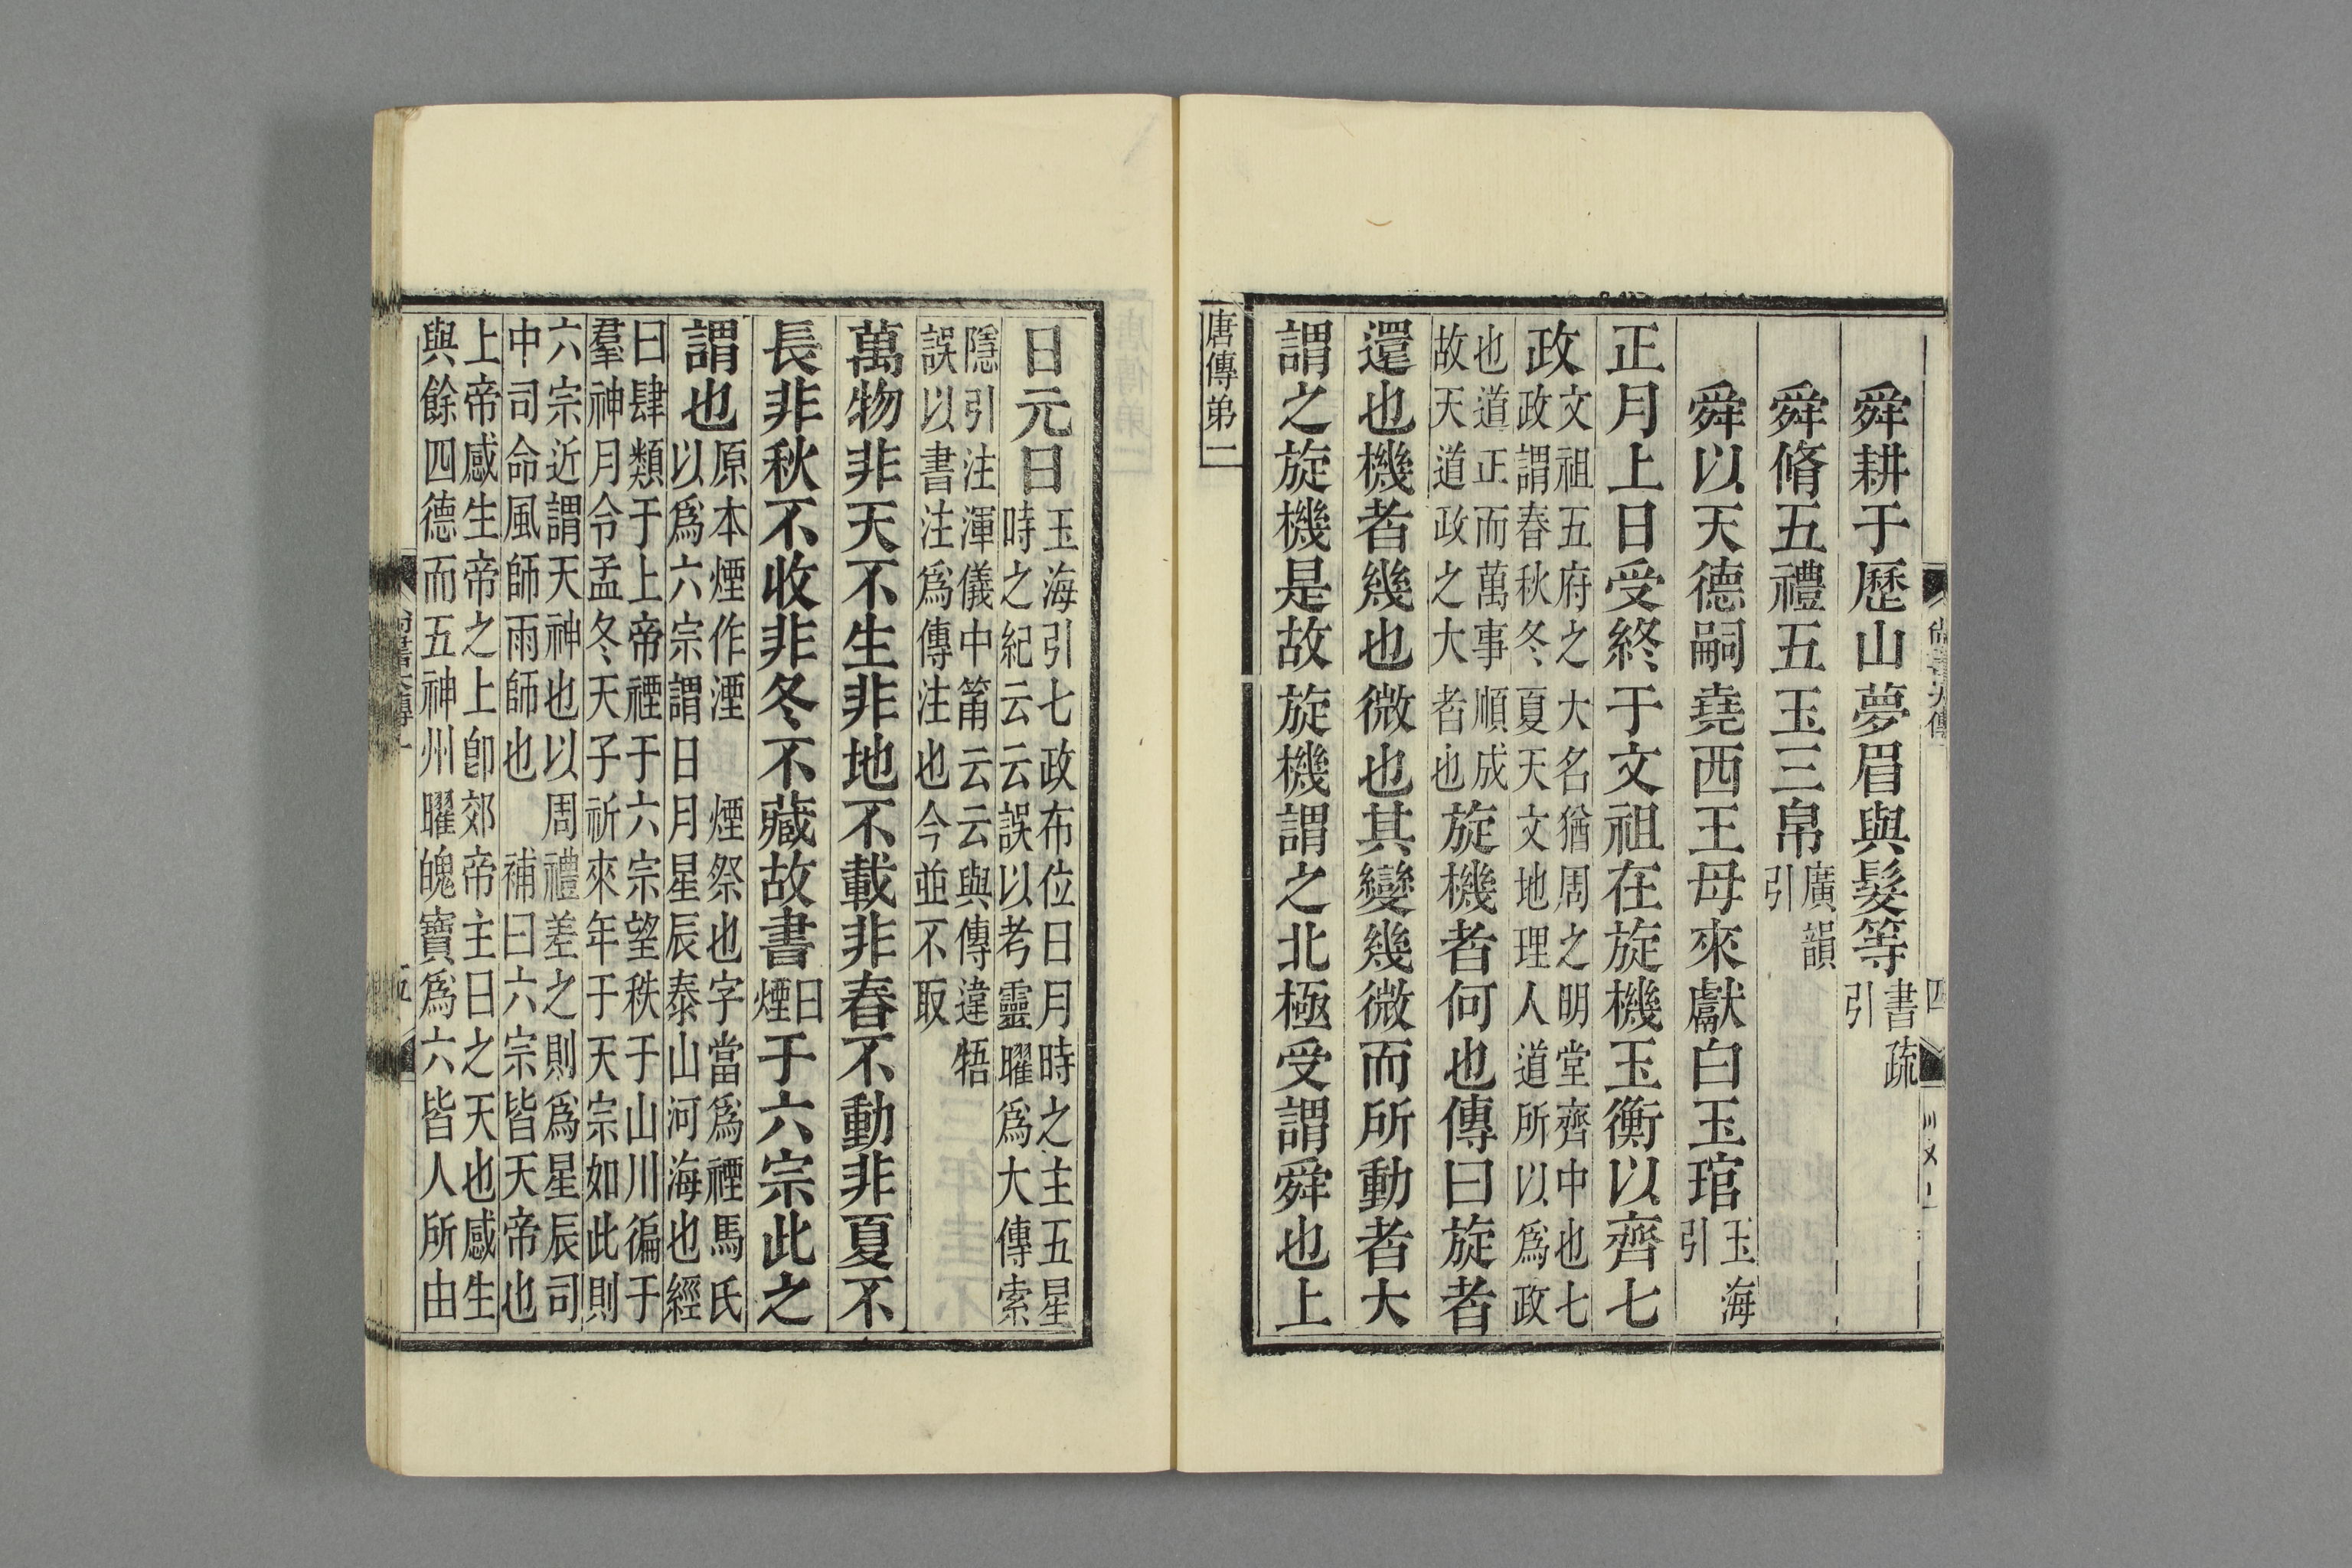 尚書大傳
四
舜耕于歷山夢眉與髮等書疏引
舜脩五禮五玉三帛廣韻引
舜以天德嗣堯西王母來獻白玉琯玉海引
正月上日受終于文祖在旋機玉衡以齊七
政文祖五府之大名猶周之明堂齊中也七政謂春秋冬夏天文地理人道所以爲政
也道正而萬事順成故天道政之大者也旋機者何也傳曰旋者
還也機者幾也微也其變幾微而所動者大
謂之旋機是故旋機謂之北極受謂舜也上
唐傳弟二
日元日玉海引七政布位日月時之主五星時之紀云云誤以考靈曜爲大傳索
隱引注渾儀中筩云云與傳違牾誤以書注爲傳注也今並不取
萬物非天不生非地不載非春不動非夏不
長非秋不收非冬不藏故書曰煙于六宗此之
謂也原本煙作湮 煙祭也字當爲禋馬氏以爲六宗謂日月星辰泰山河海也經
曰肆類于上帝禋于六宗望秩于山川徧于羣神月令孟冬天子祈來年于天宗如此則
六宗近謂天神也以周禮差之則爲星辰司中司命風師雨師也 補曰六宗皆天帝也
上帝感生帝之上卽郊帝主日之天也感生與餘四德而五神州曜魄寶爲六皆人所由
尚書大傳
五